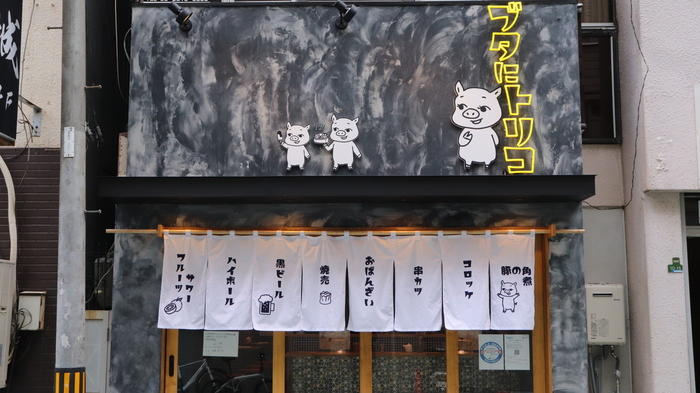 ブタにトリコ
豚の角煮
コロッケ
串カツ
おばんざい
焼売
黒ビール
ハイボール
サワー
フルーツ
誠